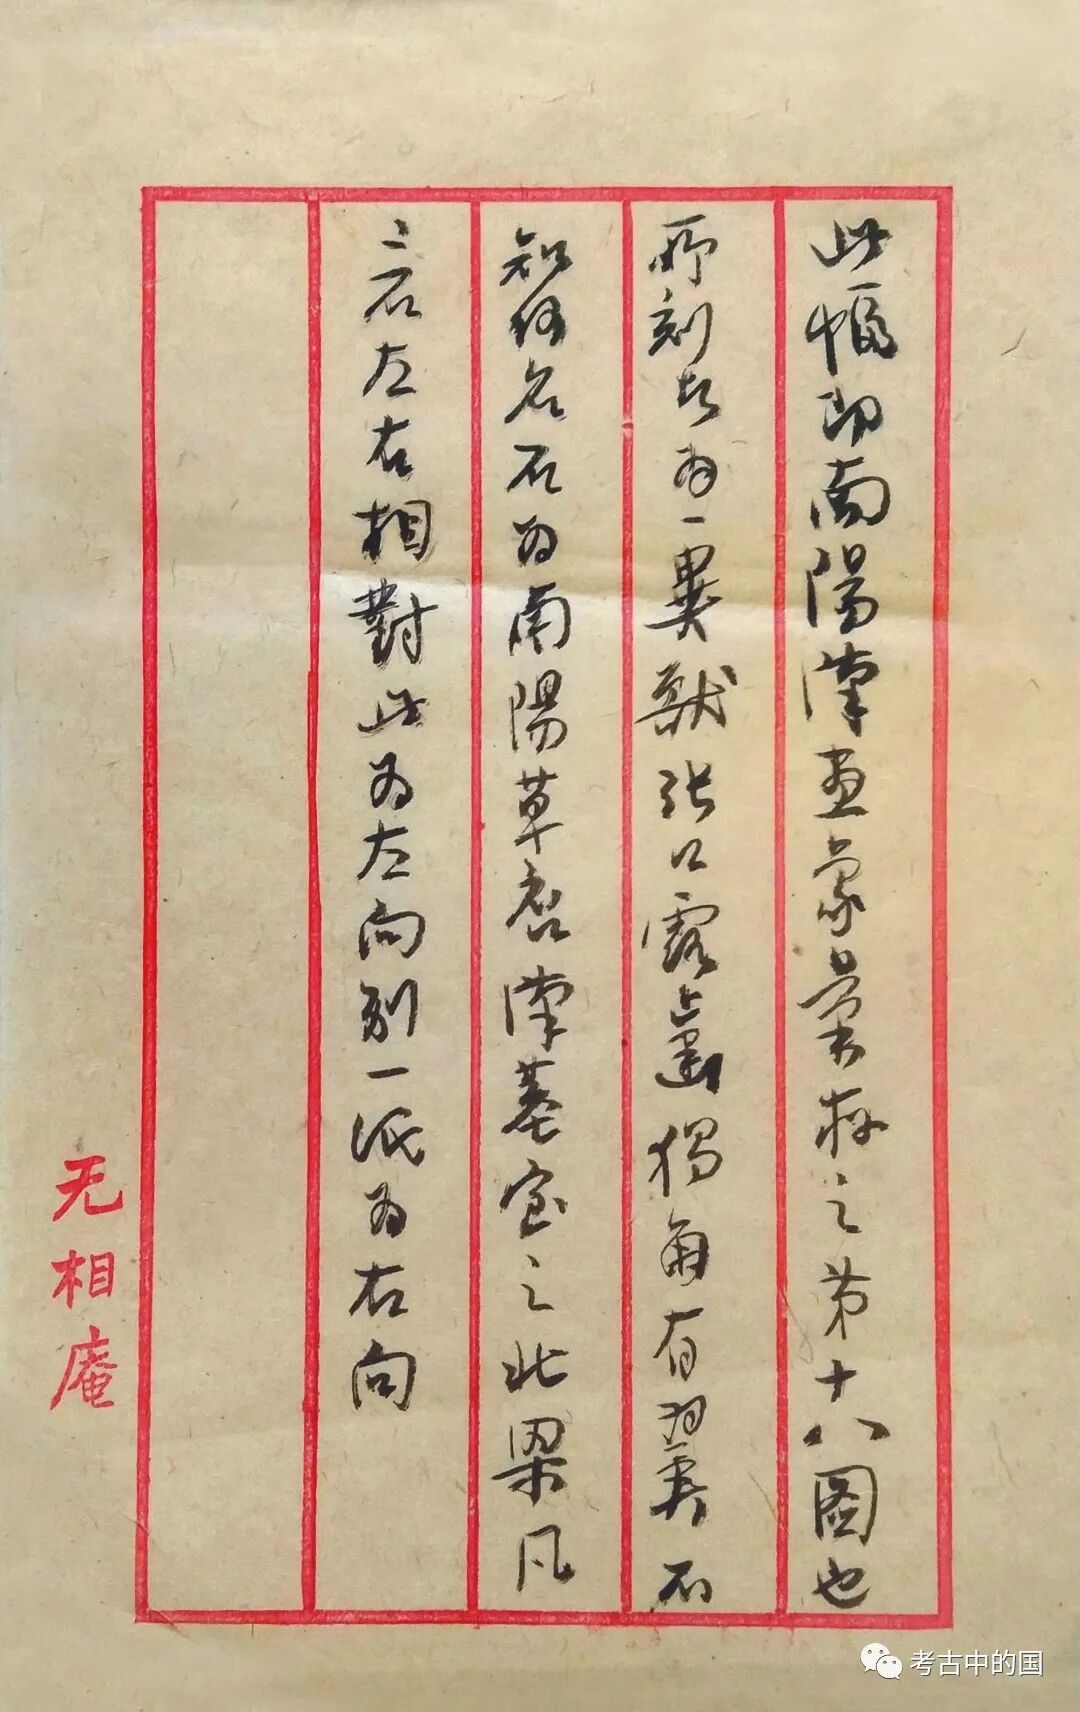 此幅即南陽漢画象彙存之第十八圖也
所刻者为一異獸张口露齒獨角有翼不
知何名石为南陽草店漢墓室之北梁凡
二石左右相對此为左向别一派为右向
无相庵
考古中的国